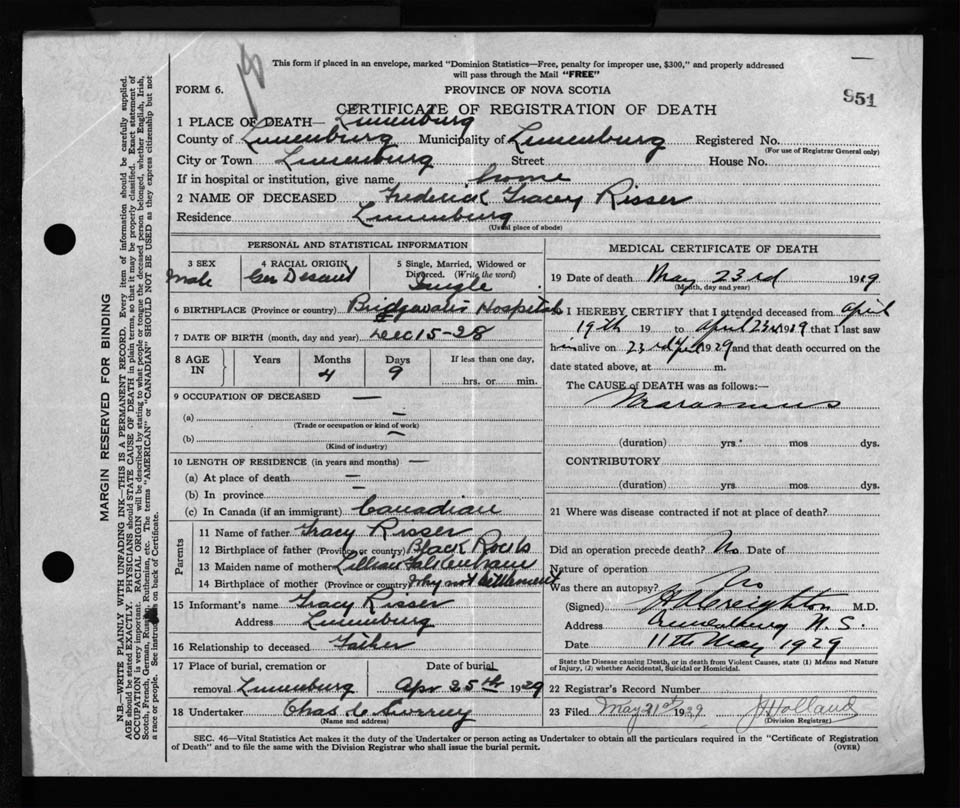 This form if placed in an envelope, marked "Dominion Statistics—Free, penalty for improper use, $300," and properly addressed
will pass through the Mail "FREE"
FORM 6.
PROVINCE OF NOVA SCOTIA
951
CERTIFICATE OF REGISTRATION OF DEATH
1 PLACE OF DEATH— Lunenburg
County of Lunenburg Municipality of Lunenburg Registered No.
(For use of Registrar General only)
City or Town Lunenburg Street House No.
If in hospital or institution, give name home
2 NAME OF DECEASED Frederick Tracey Risser
Residence Lunenburg
(Usual place of abode)
PERSONAL AND STATISTICAL INFORMATION
3 SEX
Male
4 RACIAL ORIGIN
Ger Descent
5 Single, Married, Widowed or
Divorced. (Write the word)
Single
6 BIRTHPLACE (Province or country) Bridgewater Hospital
7 DATE OF BIRTH (month, day and year) Dec 15-28
8 AGE IN
Years Months Days If less than one day,
4 9 hrs. or min.
9 OCCUPATION OF DECEASED —
(a) —
(Trade or occupation or kind of work)
(b) —
(Kind of industry)
10 LENGTH OF RESIDENCE (in years and months) —
(a) At place of death —
(b) In province —
(c) In Canada (if an immigrant) Canadian
Parents
11 Name of father Tracy Risser
12 Birthplace of father (Province or country) Black Rocks
13 Maiden name of mother Lillian Falkenham
14 Birthplace of mother (Province or country) Why not Settlement
15 Informant's name Tracy Risser
Address Lunenburg
16 Relationship to deceased Father
17 Place of burial, cremation or Date of burial
removal Lunenburg Apr 25th 1929
18 Undertaker Chas
(Name and address)
MEDICAL CERTIFICATE OF DEATH
19 Date of death May 23rd 1929
(Month, day and year)
I HEREBY CERTIFY that I attended deceased from April
19th 19 to April 23rd 1929 that I last saw
him alive on 23rd Apl 1929 and that death occurred on the
date stated above, at m.
The CAUSE of DEATH was as follows:—
Marasmus
(duration) yrs. mos dys.
CONTRIBUTORY
(duration) yrs. mos dys.
21 Where was disease contracted if not at place of death?
Did an operation precede death? No Date of
Nature of operation
Was there an autopsy? No
(Signed) Creighton M.D.
Address Lunenburg N.S.
Date 11th May 1929
State the Disease causing Death, or in death from Violent Causes, state (1) Means and Nature
of Injury, (2) whether Accidental, Suicidal or Homicidal.
22 Registrar's Record Number
23 Filed May 21st 1929 Holland
(Division Registrar)
SEC. 46—Vital Statistics Act makes it the duty of the Undertaker or person acting as Undertaker to obtain all the particulars required in the "Certificate of Registration
of Death" and to file the same with the Division Registrar who shall issue the burial permit.
(OVER)
MARGIN RESERVED FOR BINDING
N.B.—WRITE PLAINLY WITH UNFADING INK—THIS IS A PERMANENT RECORD. Every item of information should be carefully supplied.
AGE should be stated EXACTLY. PHYSICIANS should STATE CAUSE OF DEATH in plain terms, so that it may be properly classified. Exact statement of
OCCUPATION is very important. RACIAL ORIGIN will be described by stating to what people or tongue the deceased person belonged, whether English, Irish,
Scotch, French, German, Russian, Ruthenian, etc. The terms "AMERICAN" or "CANADIAN" SHOULD NOT BE USED as they express citizenship but not
a race or people. See instructions on back of Certificate.